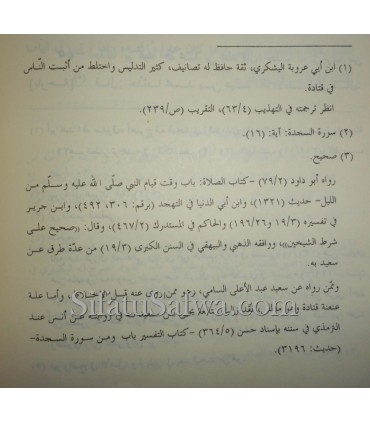 (١) ابن أبي عروبة اليشكري، ثقة حافظ له تصانيف، كثير التدليس واختلط من أثبت النّاس
في قتادة.
انظر ترجمته في التهذيب (٦٣/٤)، التقريب (ص/٢٣٩).
(٢) سورة السجدة: آية: (١٦).
(٣) صحيح.
رواه أبو داود (٧٩/٢) -كتاب الصلاة: باب وقت قيام النبي صلّى الله عليه وسلّم من
الليل- حديث (١٣٢١)، وابن أبي الدنيا في التهجد (برقم: ٣٠٦، ٤٩٢)، وابن جرير
في تفسيره (١٩/٣ و١٩٦/٢٦) والحاكم في المستدرك (٤٦٧/٢)، وقال: «صحيح على
شرط الشيخين»، ووافقه الذهبي والبيهقي في السنن الكبرى (١٩/٣) من عدّة طرق عن
سعيد به.
وممّن رواه عن سعيد عبد الأعلى السامي، وهو ممن روى عنه قبل الاختلاط، وأما علة
عنعنة قتادة عن أنس عند
SifatuSafwa.com
الترمذي في سننه بإسناد حسن (٣٦٤/٥) -كتاب التفسير باب ومن سورة السجدة-
(حديث: ٣١٩٦).